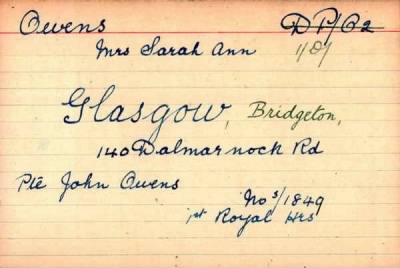 Owens DP/O2
Mrs Sarah Ann 1/D/
Glasgow, Bridgeton,
140 Dalmarnock Rd
Pte John Owens
No s/1849
1st Royal Hrs